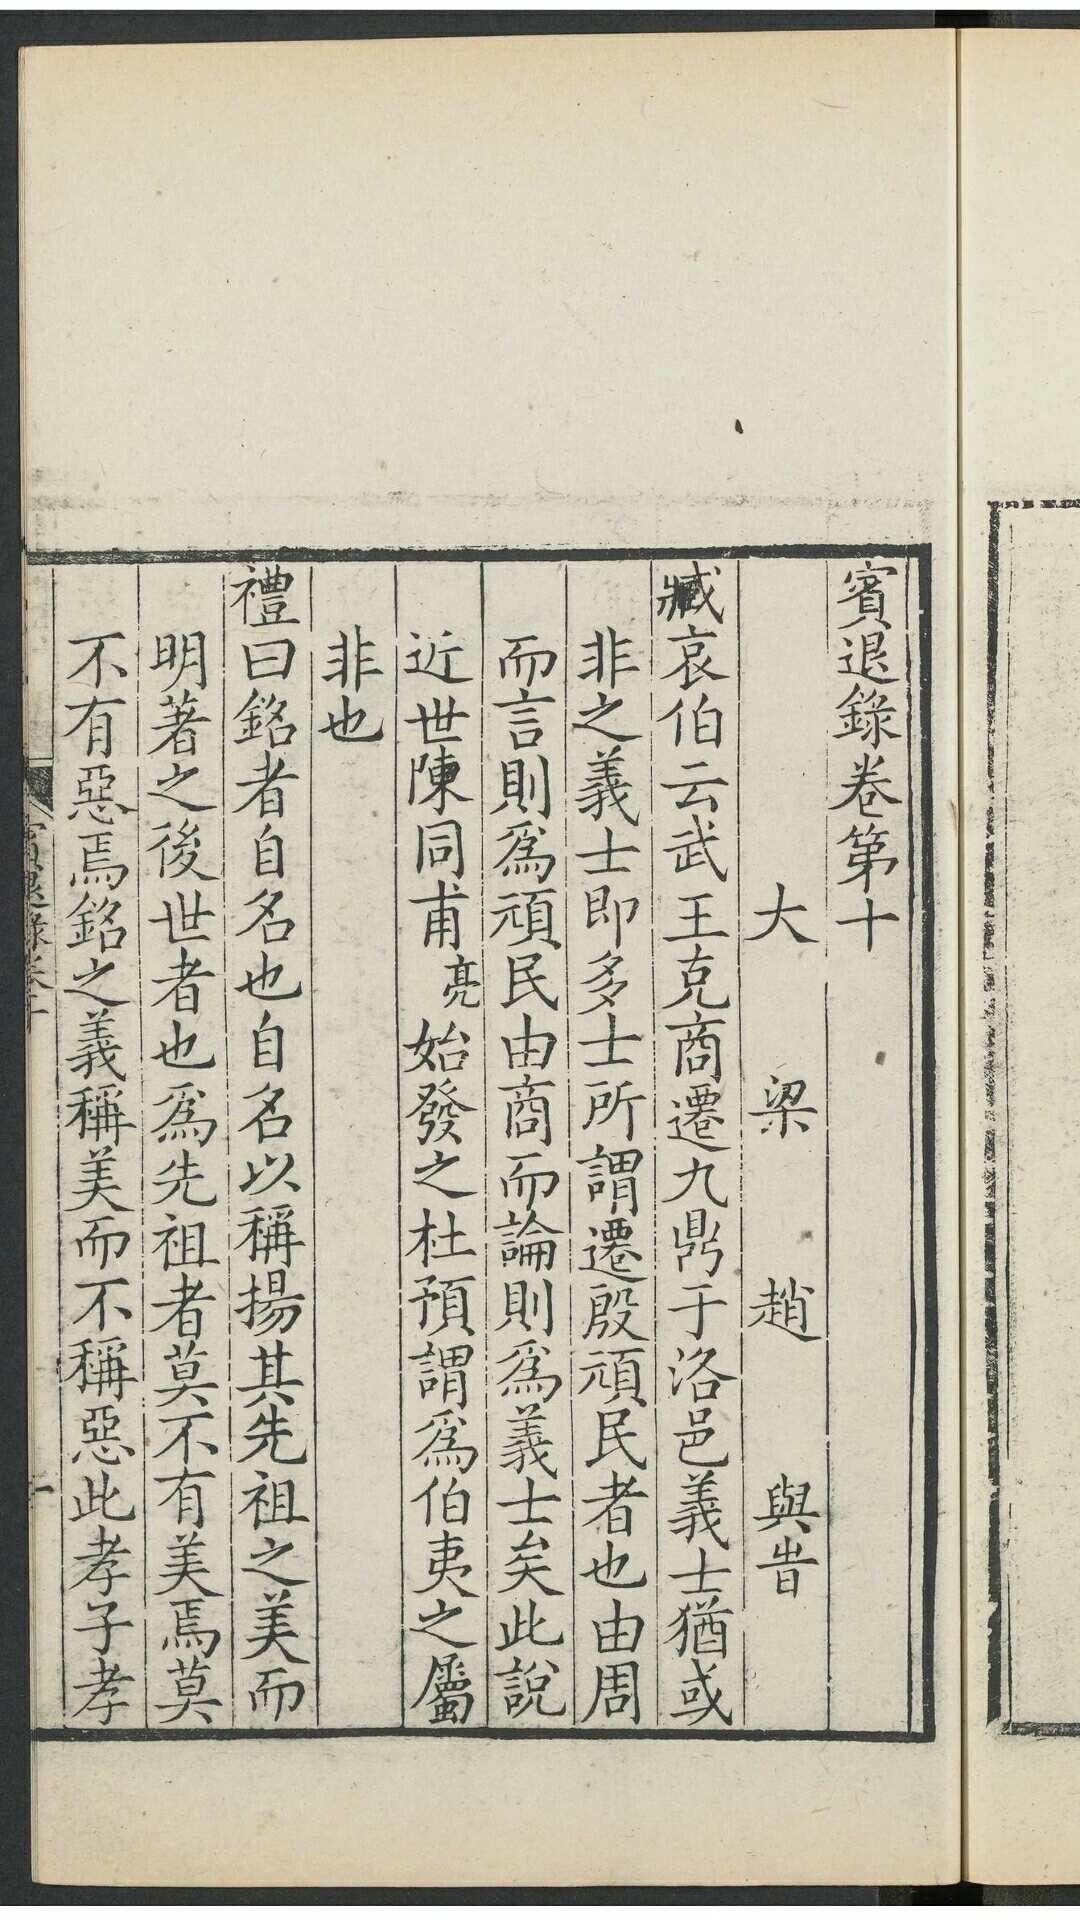 賓退錄卷第十
大梁趙與旹
臧哀伯云武王克商遷九鼎于洛邑義士猶或
非之義士即多士所謂遷殷頑民者也由周
而言則為頑民由商而論則為義士矣此說
近世陳同甫亮始發之杜預謂為伯夷之屬
非也
禮曰銘者自名也自名以稱揚其先祖之美而
明著之後世者也為先祖者莫不有美焉莫
不有惡焉銘之義稱美而不稱惡此孝子孝
賓退錄卷十
一